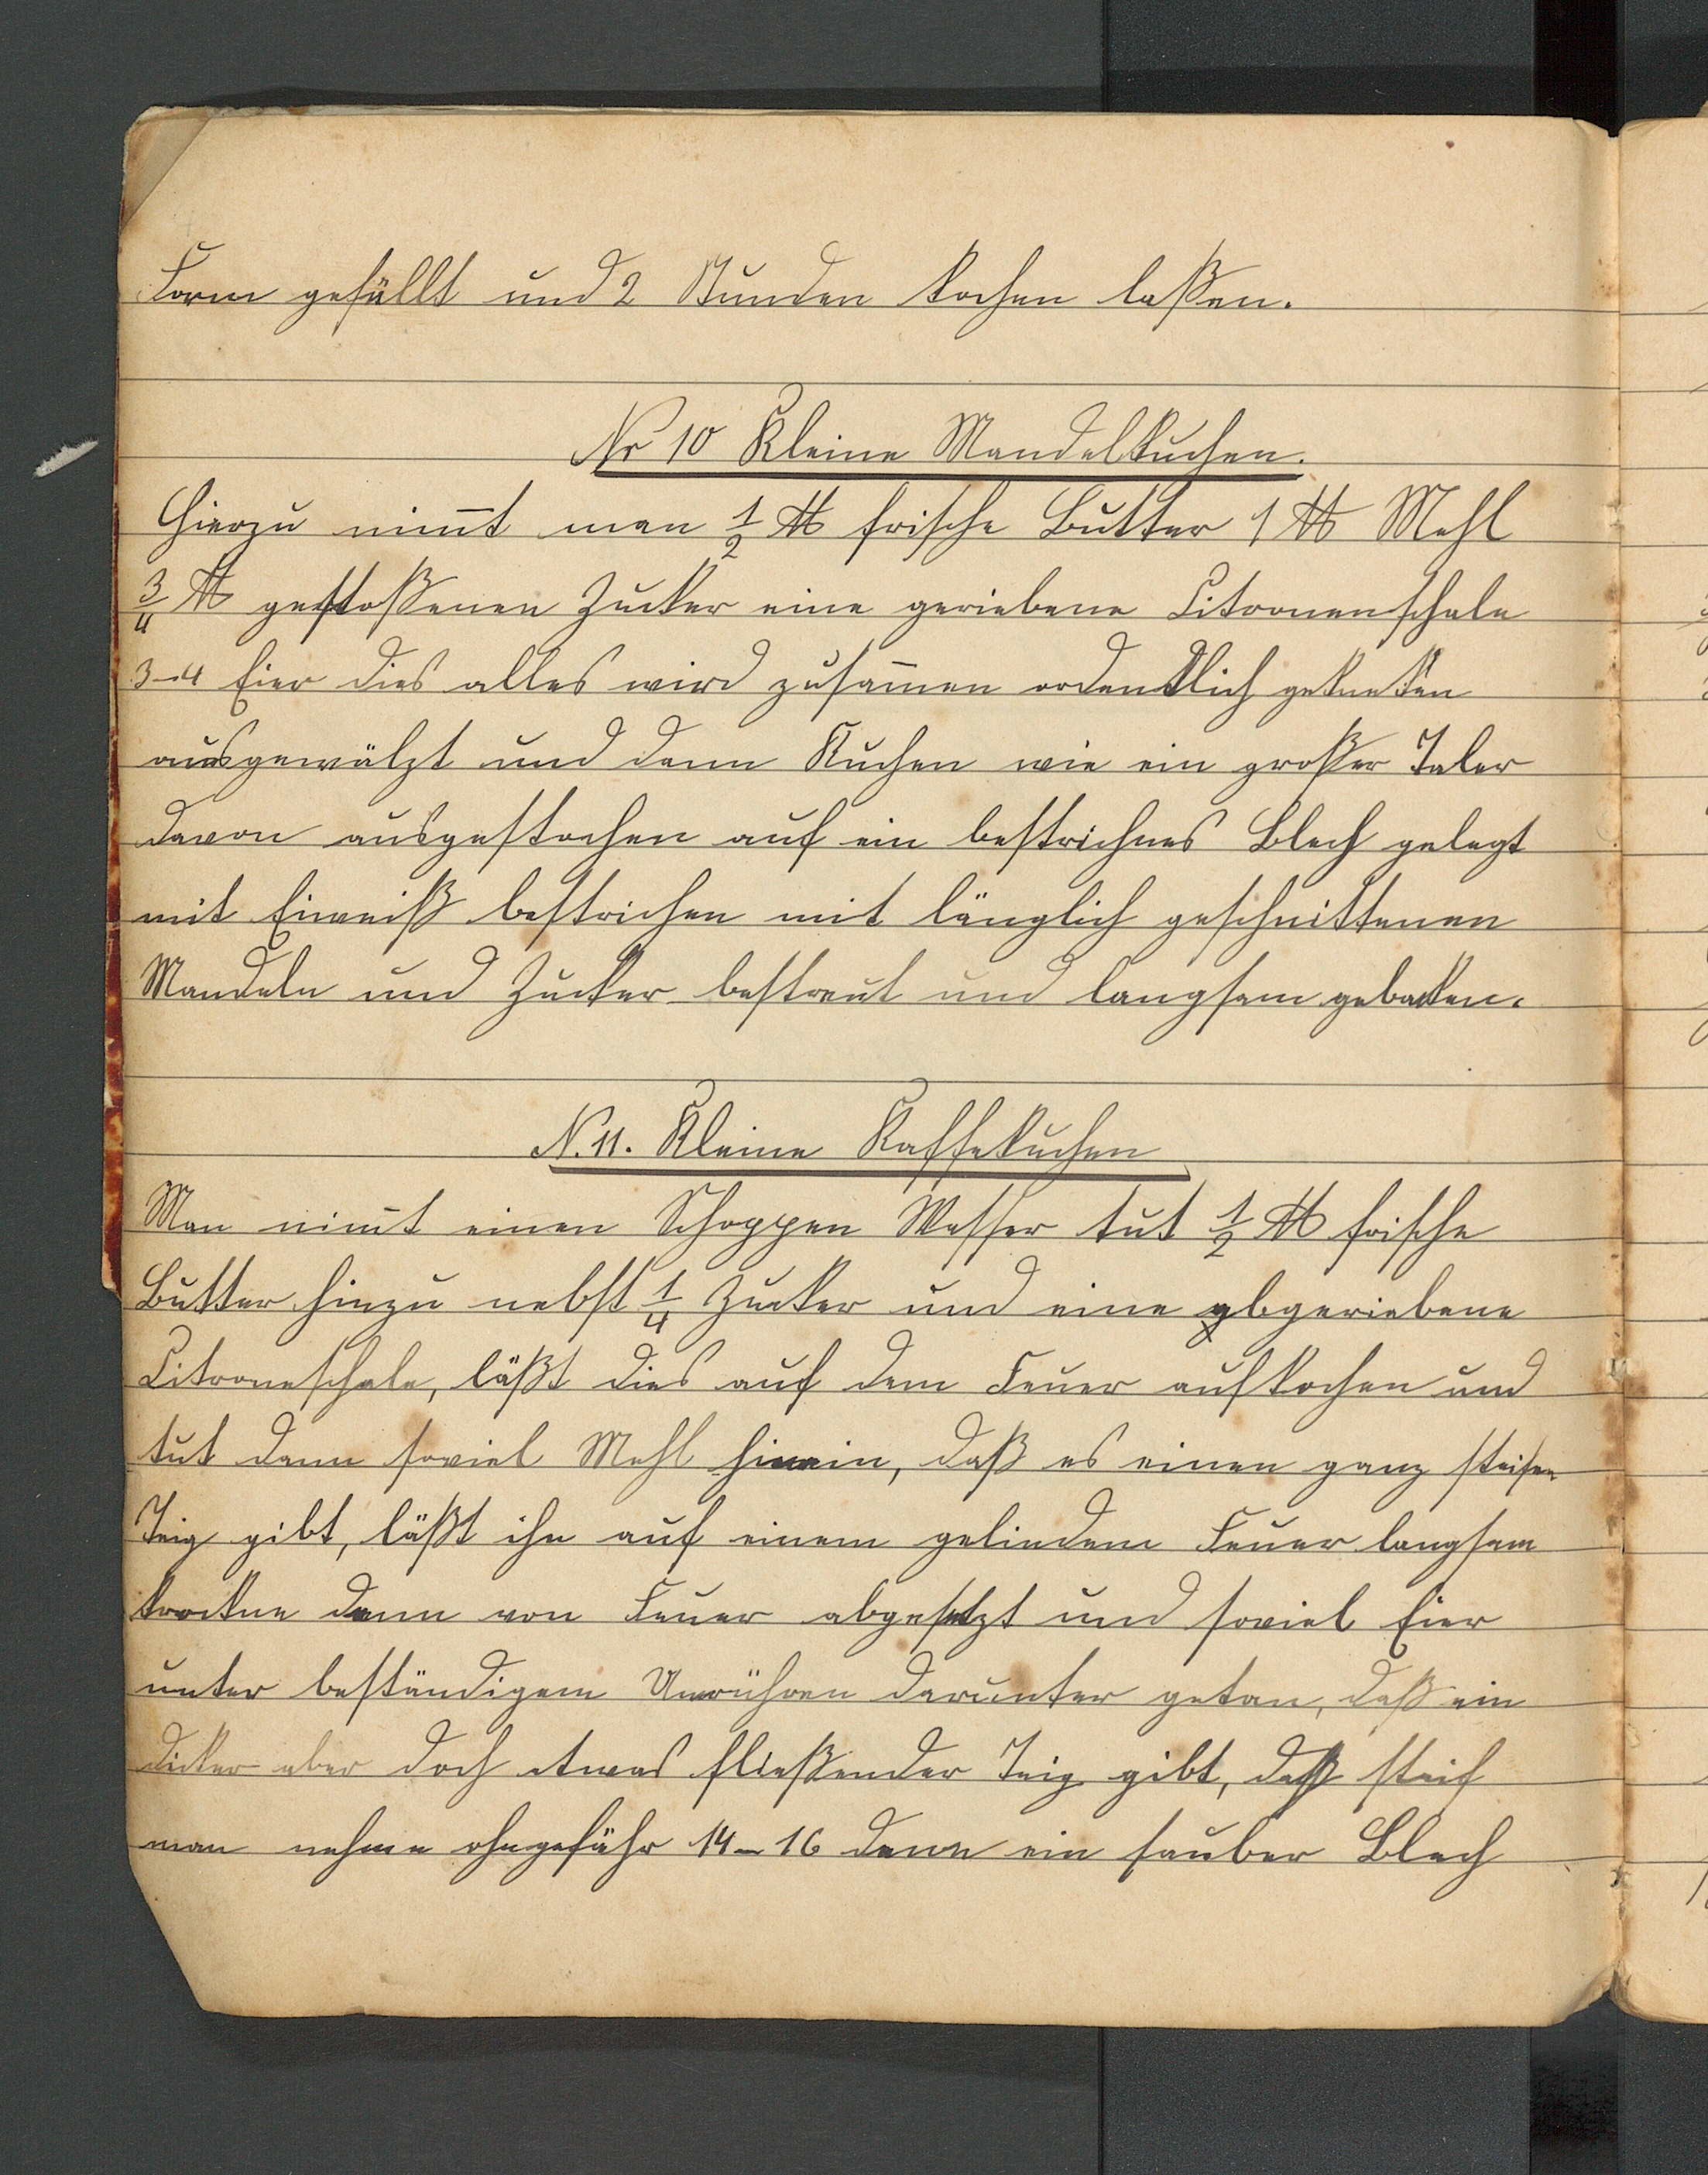 Form gefüllt und 2 Stunden kochen laßen.
Nr 10 Kleine Mandelkuchen.
Hierzu nim̄t man 1/2 ℔ frische Butter 1 ℔ Mehl
3/4 ℔ gestoßenen Zucker eine geriebene Citronenschale
3-4 Eier dies alles wird zusam̄en ordentlich gekneten
ausgewälzt und dann Kuchen wie ein großer Taler
davon ausgestochen auf ein bestrichnes Blech gelegt
mit Eiweiß bestrichen mit länglich geschnittenen
Mandeln und Zucker bestreut und langsam gebacken.
N. 11. Kleine Kaffekuchen
Man nim̄t einen Schoppen Wasser tut 1/2 ℔ frische
Butter hinzu nebst 1/4 Zucker und eine abgeriebene
Citroneschale, läßt dies auf dem Feuer aufkochen und
tut dann soviel Mehl hinein, daß es einen ganz steifen
Teig gibt, läßt ihn auf einem gelindem Feuer langsam
trockne dann von Feuer abgesetzt und soviel Eier
unter beständigem Umrühren darunter getan, daß ein
dicker aber doch etwas fließender Teig gibt, daß steif
man nehme ohngefähr 14-16 dann ein sauber Blech